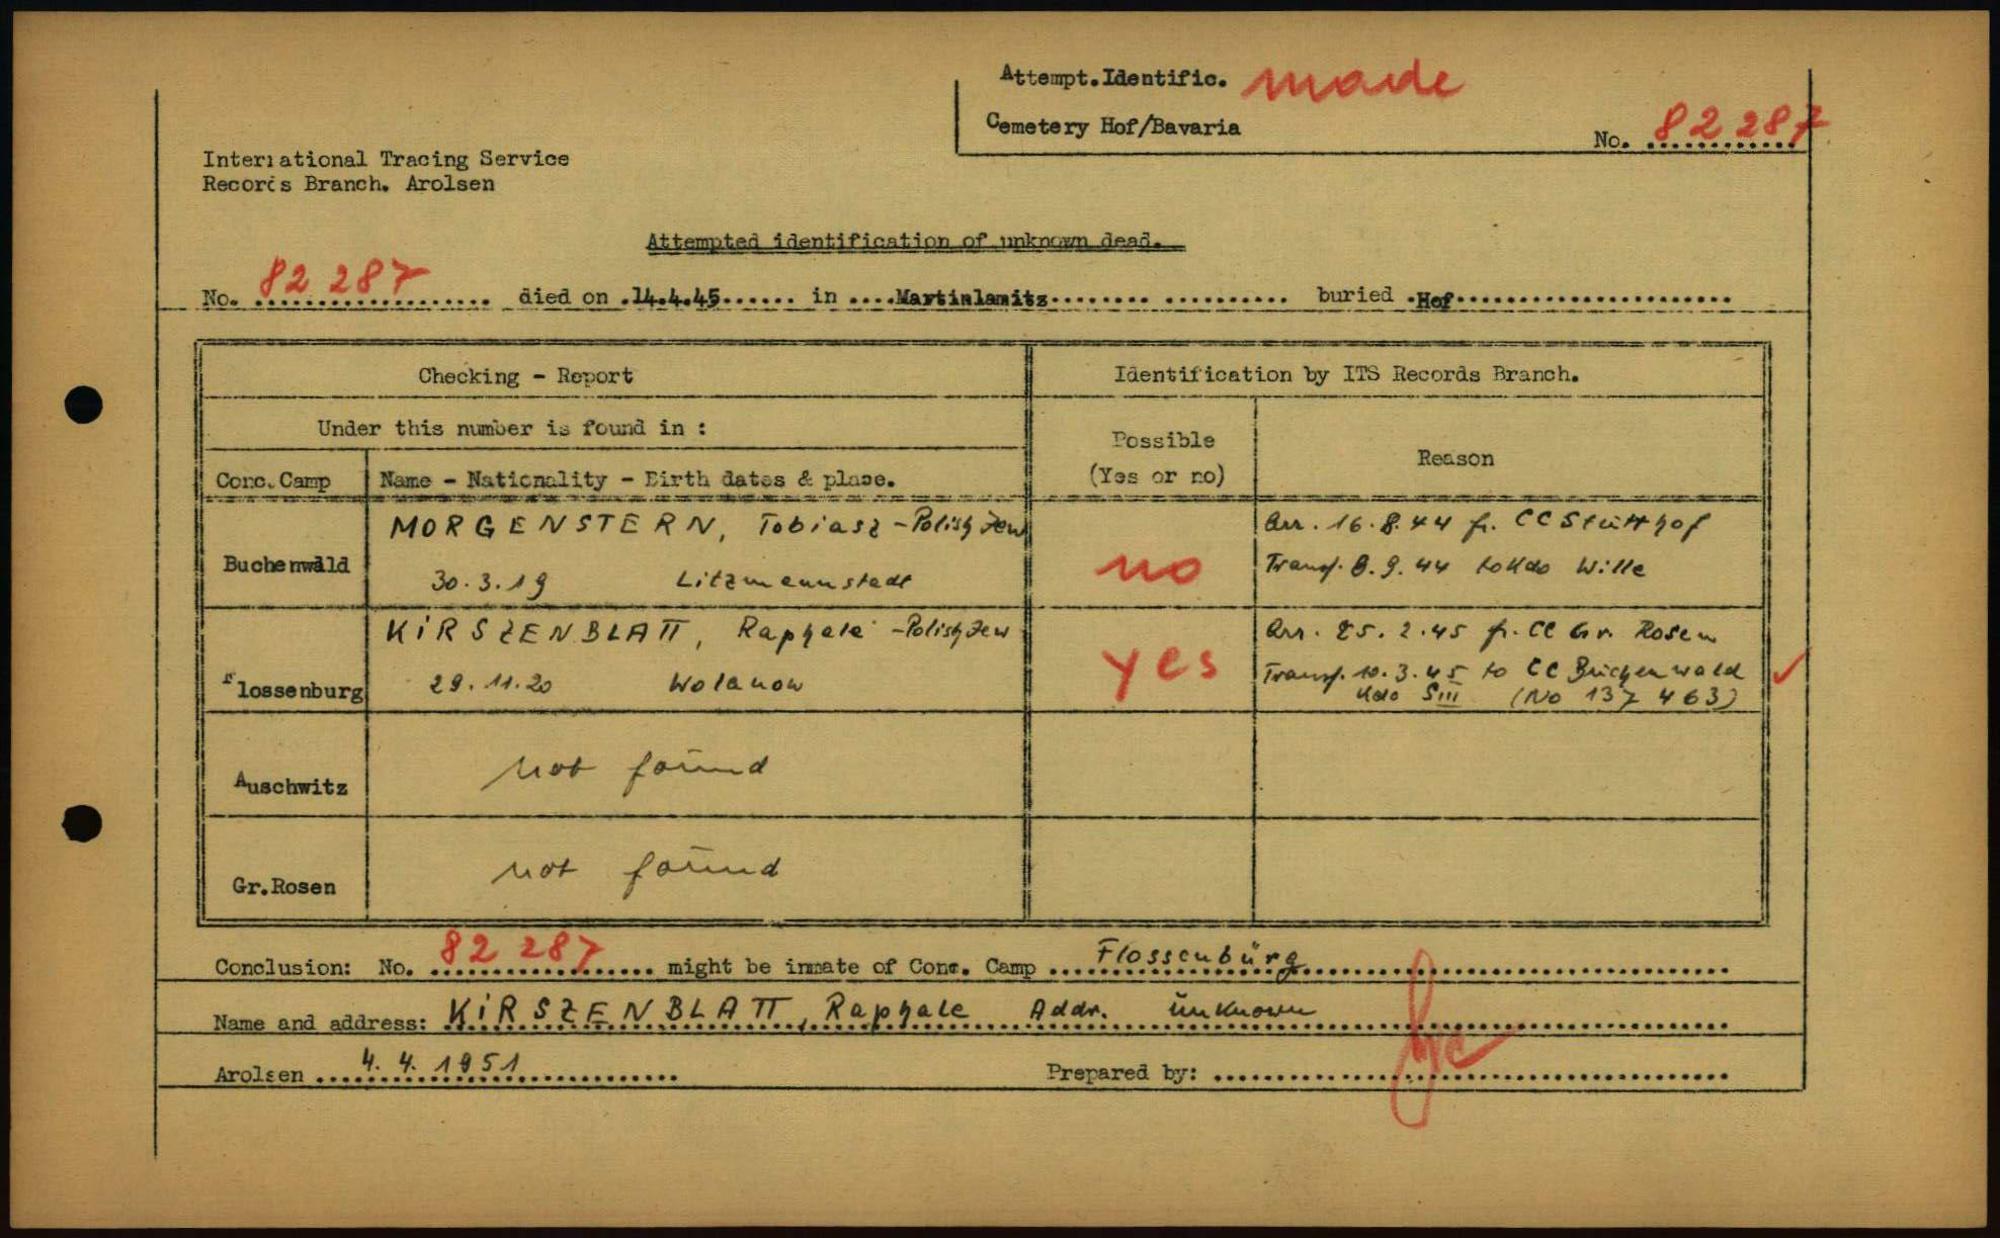 Attempt.Identific. made
Cemetery Hof/Bavaria
No. 82 287
International Tracing Service
Records Branch. Arolsen
Attempted identification of unknown dead.
No. 82 287 died on .14.4.45...... in ....Martinlamitz........ .......... buried .Hof.......................
Checking - Report
Identification by ITS Records Branch.
Under this number is found in :
Possible
(Yes or no)
Reason
Conc.Camp
Name - Nationality - Birth dates & place.
Buchenwald
MORGENSTERN, Tobiasz - Polish Jew
30.3.19 Litzmannstadt
no
Arr. 16.8.44 fr. CC Stutthof
Transf. 8.9.44 to Kdo Wille
Flossenburg
KIRSZENBLATT, Raphale - Polish Jew
29.11.20 Wolanow
yes
Arr. 25.2.45 fr. CC Gr. Rosen
Transf. 10.3.45 to CC Buchenwald
Kdo SIII (No 137 463)
Auschwitz
not found
Gr.Rosen
not found
Conclusion: No. 82 287 might be inmate of Conc. Camp Flossenbürg
Name and address: KIRSZENBLATT, Raphale Addr. unknown
Arolsen 4. 4. 1951
Prepared by: